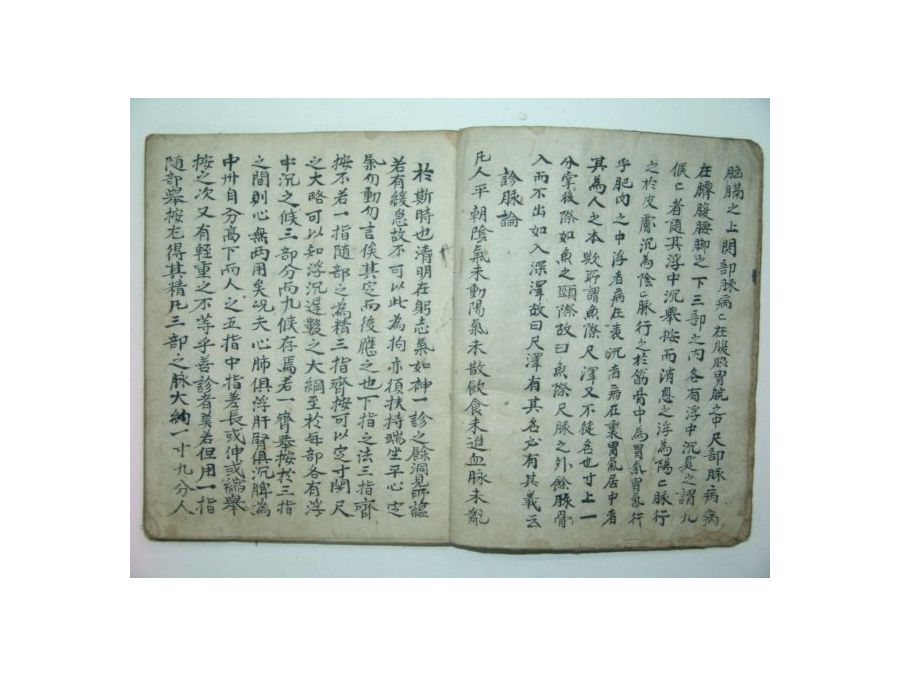 胸膈之上関部脉病〻在腹膜胃脘之中尺部脉病病
在臍腹腰脚之下三部之内各有浮中沉是之謂九
候〻者随其浮中沉舉按而消息之浮為陽〻脉行
之於皮膚沉為陰〻脉行之於筋骨中為胃氣胃氣行
乎肥肉之中浮者病在表沉者病在裏胃氣居中者
其為人之本歟所謂魚際尺澤又不徒名也寸上一
分掌後際如魚之頤際故曰魚際尺脉之外餘脉骨
入而不出如入深澤故曰尺澤有其名必有其義云
診脉論
凡人平朝陰氣未動陽氣未散飲食未進血脉未亂
於斯時也清明在躬志氣如神一診之餘洞見
若有緩急故不可以此為拘亦須扶持端坐平心定
氣勿動勿言俟其定而後應之也下指之法三指齊
按不若一指随部之為精三指齊按可以定寸関尺
之大略可以知浮沉遅數之大綱至於每部各有浮
中沉之候三部分而九候存焉若一齊舉按於三指
之間則心無两用矣况夫心肺俱浮肝腎俱沉脾為
中州自分高下而人之五指中指差長或伸或縮舉
按之次又有輕重之不等乎善診者莫若但用一指
随部舉按尤得其精凡三部之脉大約一寸九分人